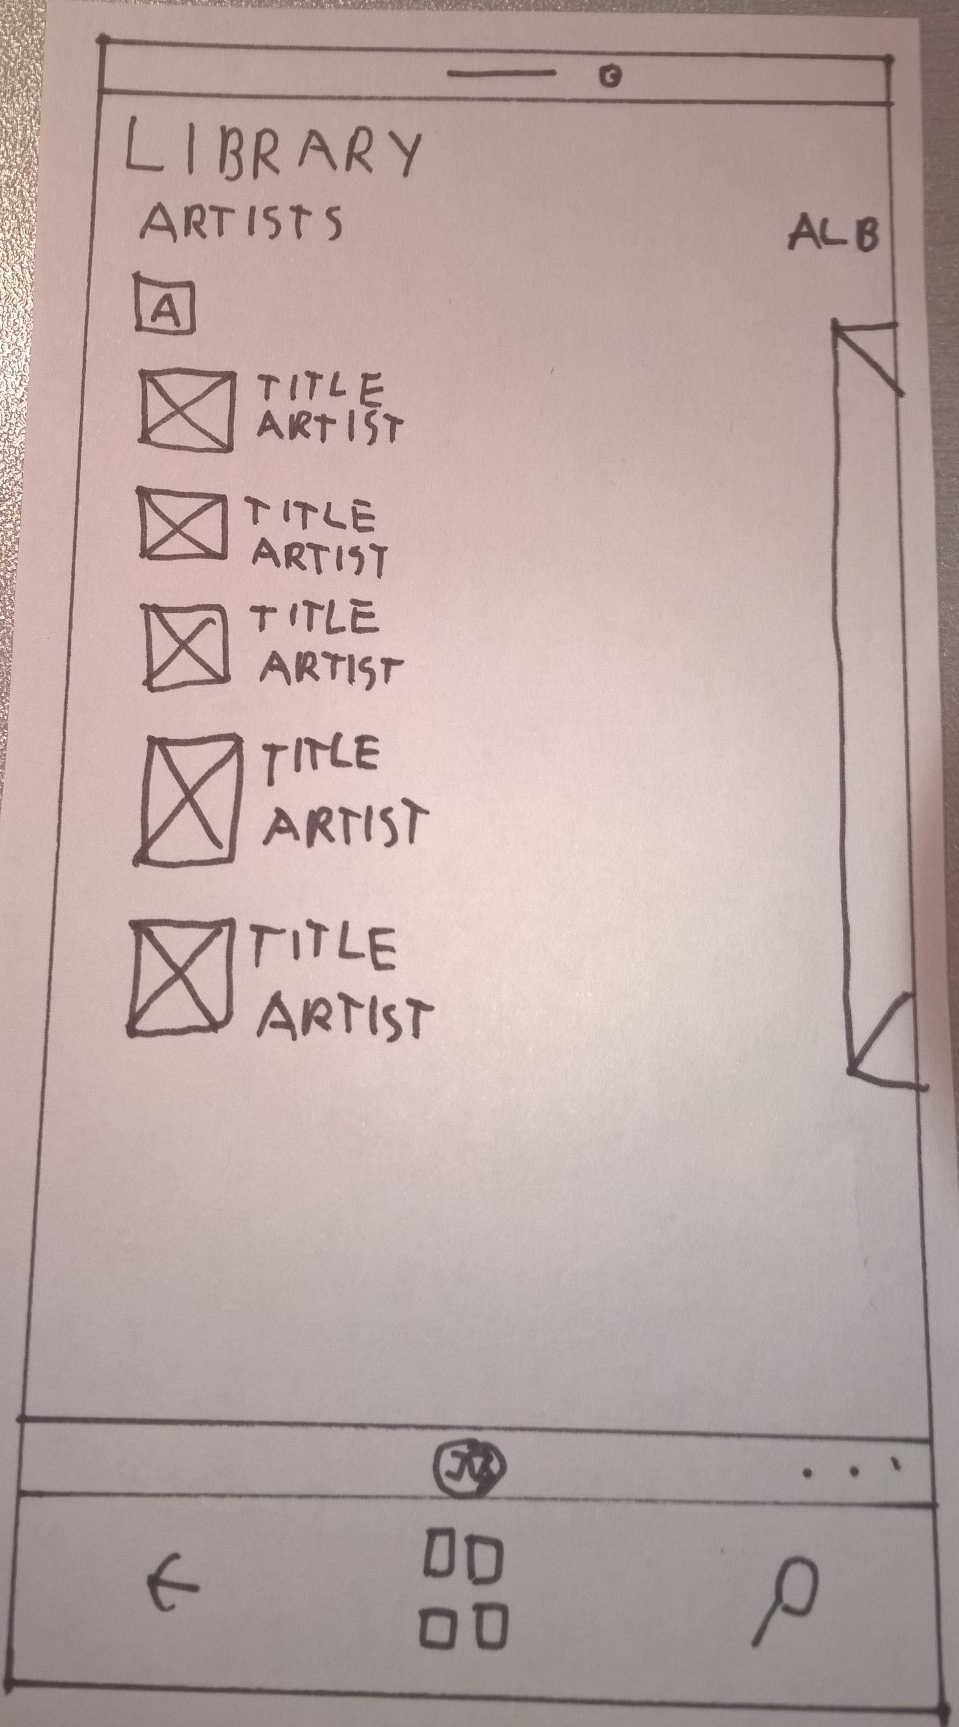 LIBRARY
ARTISTS
ALB
A
TITLE
ARTIST
TITLE
ARTIST
TITLE
ARTIST
TITLE
ARTIST
TITLE
ARTIST